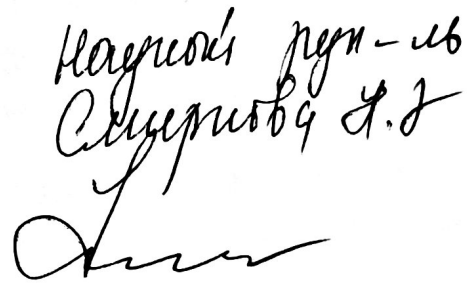 Научный рук-ль
Смирнова